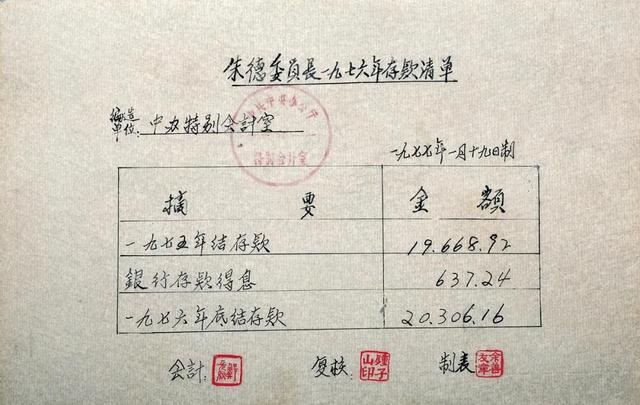 朱德委員長一九七六年存款清单
編造
单位:中办特别会計室
特别会計室
一九七七年一月十九日制
摘要 金額
一九七五年结存款 19.668.92
銀行存款得息 637.24
一九七六年底结存款 20.306.16
会計: 复核: 鍾子山印 制表 余善友章